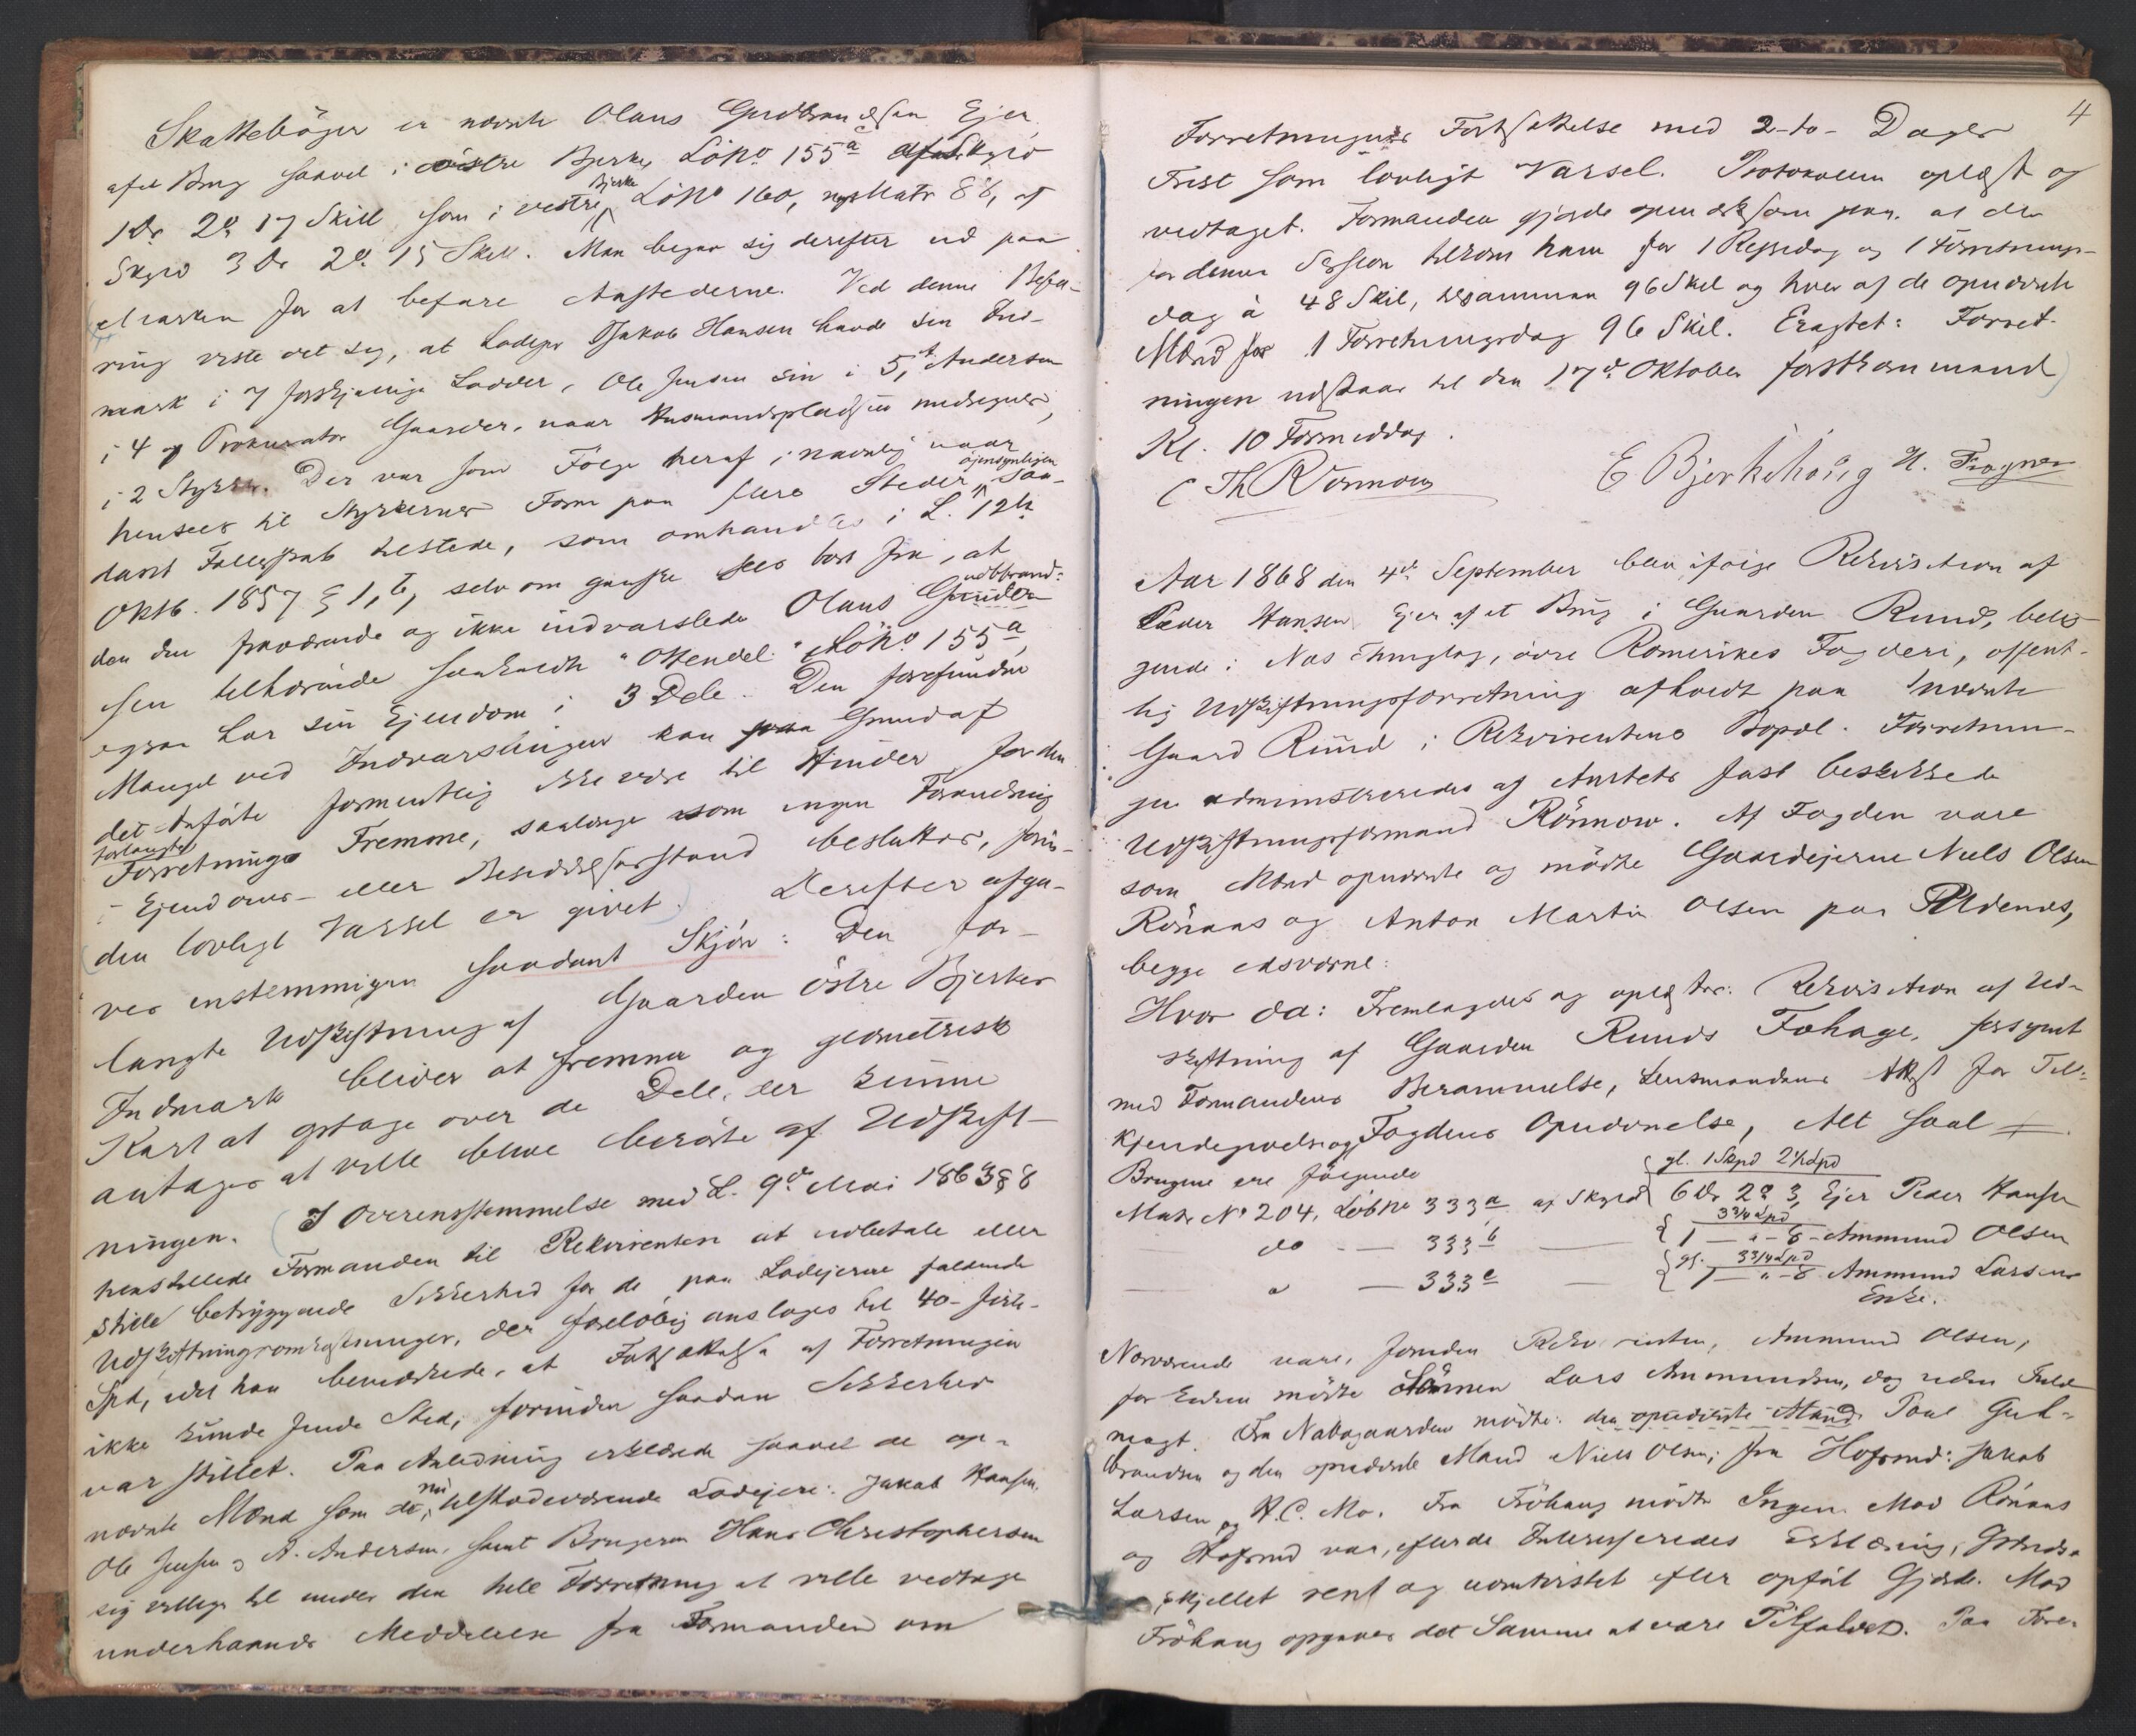 Skattebøger er nævnte Olaus Gudbrandsen Ejer
af et Brug saavel i østre Bjerke, Löbno 155a af Skyld
1 Dr 2 ₰ 17 Skill som i vestre Bjerke Löbno 160, nyt Matr 86, af
Skyld 3 Dr 2 ₰ 15 Skill. Man begav sig derefter ud paa
Marken for at befare Aastederne. Ved denne Befa-
ring viste det sig, at Lodejer Jakob Hansen havde sin Ind-
mark i 7 forskjellige Lodder, Ole Jensen sin i 5, A. Andersen
i 4 og Prokurator Gaarder, naar Husmandspladsen medregnes,
i 2 Stykker. Der var som Følge heraf, navnlig naar
henseer til Stykkernes Form paa flere Steder øiensynligen saa-
dant Fællesskab tilstede, som omhandles i L. 12te
Oktb. 1857 § 1, b, selv om ganske sees bort fra, at
den fraværende og ikke indvarslede Olaus Gudbrand-
sen tilhørende saakaldte "Ottendel" Löbno 155a,
ogsaa har sin Ejendom i 3 Dele. Den forefundne
Mangel ved Indvarslingen kan paa Grund af
det Anførte formentlig ikke være til Hinder for den
forlangte Forretnings Fremme, saalænge som ingen Forandring
i Ejendoms- eller Besiddelsesstand besluttes, førin-
den lovligt Varsel er givet. Derefter afga-
ves enstemmigen saadant Skjøn: Den for-
langte Udskiftning af Gaarden østre Bjerkes
Indmark bliver at fremme og geometrisk
Kart at optage over de Dele, der kunne
antages at ville blive berørte af Udskift-
ningen. I Overensstemmelse med L. 9de Mai 1863 § 8
henstillede Formanden til Rekvirenten at udbetale eller
stille betryggende Sikkerhed for de, paa Lodejerne faldende
Udskiftningsomkostninger, der foreløbig ansloges til 40- firti-
Spd, idet han bemærkede, at Fortsættelse af Forretningen
ikke kunde finde Sted, forinden saadan Sikkerhed
var stillet. Paa Anledning erklærede saavel de op-
nævnte Mænd som de nu tilstedeværende Lodejere: Jakob Hansen,
Ole Jensen og A. Andersen, samt Brugeren Hans Christophersen
sig villige til under den hele Forretning at ville vedtage
underhaands Meddelelse fra Formanden om
4
Forretningens Fortsættelse med 2-to- Dages
Frist som lovligt Varsel. Protokollen oplæst og
vedtaget. Formanden gjorde opmærksom paa, at der
for denne Session tilkom ham for 1 Rejsedag og 1 Forretnings-
dag à 48 Skil, tilsammen 96 Skil og hver af de opnævnte
Mænd for 1 Forretningsdag 96 Skil. Eragtet: Forret-
ningen udstaar til den 17de Oktober førstkommende
Kl. 10 Formiddag.
C Th Rönnow E Bjerkehoug H. Frogner
Aar 1868 den 4de September blev ifølge Rekvisition af
Peder Hansen Ejer af et Brug i Gaarden Rund, belig-
gende i Næs Thinglag, övre Romerikes Fogderi, offent-
lig Udskiftningsforretning afholdt paa nævnte
Gaard Rund i Rekvirentens Bopæl. Forretnin-
gen administreredes af Amtets fast beskikkede
Udskiftningsformand Rönnow. Af Fogden vare
som Mænd opnævnte og mødte Gaardejerne Niels Olsen
Rönaas og Anton Martin Olsen paa Uldenæs,
begge edsvorne.
Hvor da: Fremlagdes og oplæstes: Rekvisition af Ud-
skiftning af Gaarden Runds Fæhage, forsynet
med Formandens Berammelse, Lensmandens Attest for Til-
kjendegivelse og Fogdens Opnævnelse, Alt saal
Brugene ere følgende
Matr No 204, Löbno 333a af Skyld { gl. 1 Skpd 2½ Lpd 6 Dr 2 ₰ 3, Ejer Peder Hansen
do — 333b — { 3¾ Lpd 1 — " - 8 - Ammund Olsen
— " — 333c — { gl. 3¾ Lpd 1 — " - 8 Ammund Larsens
Enke.
Nærværende vare, foruden Rekvirenten, Ammund Olsen,
for Enken mødte Sønnen Lars Ammundsen, dog uden Fuld-
magt. Fra Nabogaarden mødte: den opnævnte Mand Poul Gul-
brandsen og den opnævnte Mand Niels Olsen; fra Hofsrud: Jakob
Larsen og H. C. Mo. Fra Fröhaug mødte Ingen. Mod Rönaas
og Hofsrud var, efter de Interesseredes Erklæring, Grændse-
skjellet rent og uomtvistet efter opført Gjerde. Mod
Fröhaug opgaves det Samme at være Tilfældet. Paa Fore-